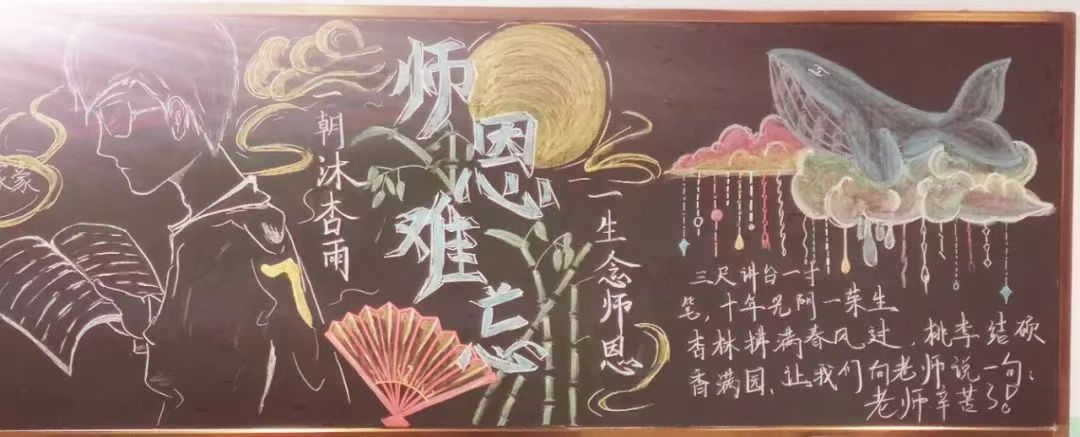 蒙
一朝沐杏雨
师恩难忘
一生念师恩
三尺讲台一寸
笔，十年光阴一生
杏林满春风过，桃李结硕
香满园，让我们向老师说一句：
老师辛苦了。